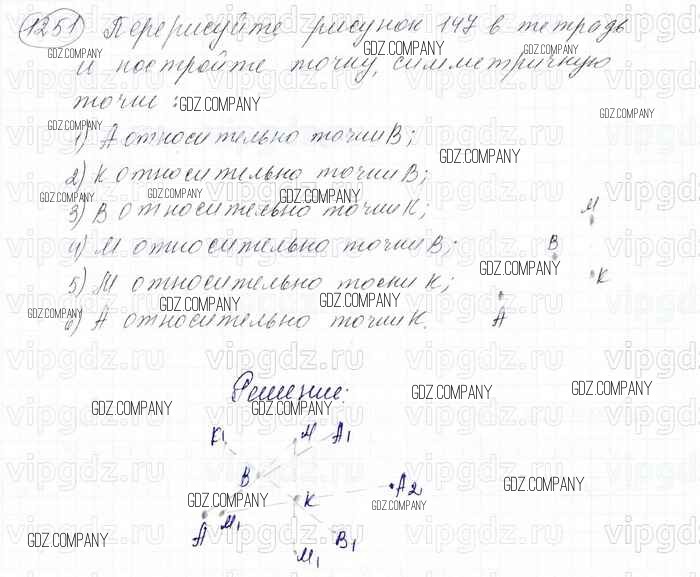 1251 Перерисуйте рисунок 147 в тетрадь
и постройте точку, симметричную
точке :
1) А относительно точки В;
2) К относительно точки В;
3) В относительно точки К;
4) М относительно точки В;
5) М относительно точки К;
6) А относительно точки К.
М
В
К
А
Решение:
К1 М А1
В
К А2
А М1
В1
М1
GDZ.COMPANY
vipgdz.ru